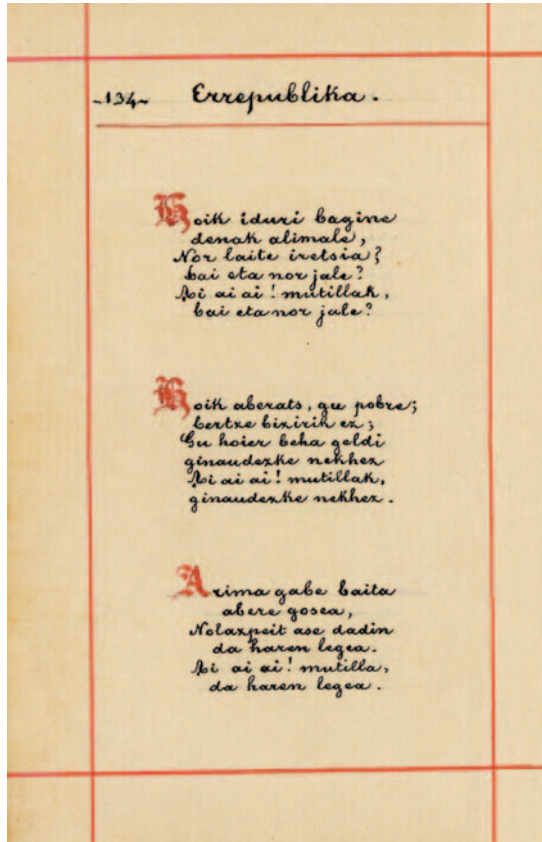 -134-
Errepublika.
Hoik iduri bagine
denak alimale,
Nor laite iretsia?
bai eta nor jale?
Ai ai ai! mutillak,
bai eta nor jale?
Hoik aberats, gu pobre;
bertze bizirik ez;
Gu hoier beha geldi
ginaudezke nekhez
Ai ai ai! mutillak,
ginaudezke nekhez.
Arima gabe baita
abere gosea,
Nolazpeit ase dadin
da haren legea.
Ai ai ai! mutilla,
da haren legea.